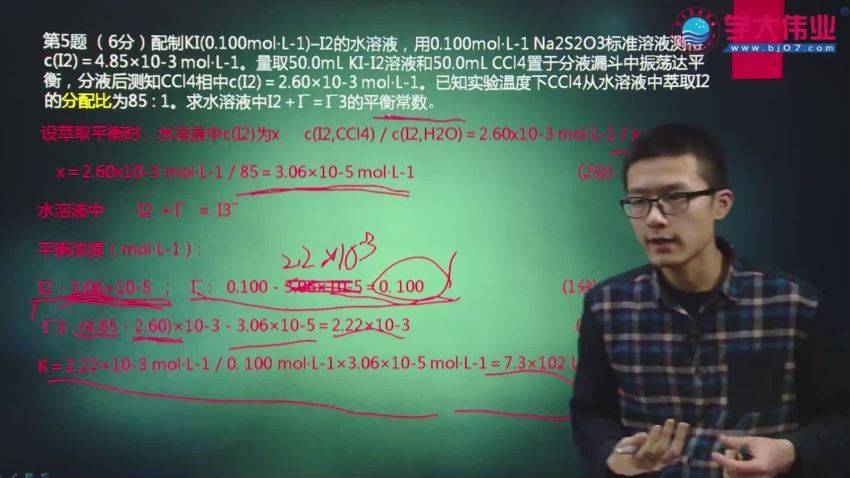 学大伟业
www.bj07.com
第5题（6分）配制KI(0.100mol·L-1)–I2的水溶液，用0.100mol·L-1 Na2S2O3标准溶液测得
c(I2) = 4.85×10-3 mol·L-1。量取50.0mL KI-I2溶液和50.0mL CCl4置于分液漏斗中振荡达平
衡，分液后测知CCl4相中c(I2) = 2.60×10-3 mol·L-1。已知实验温度下CCl4从水溶液中萃取I2
的分配比为85 : 1。求水溶液中I2 + I¯ = I¯3的平衡常数。
设萃取平衡时，水溶液中c(I2)为x c(I2,CCl4) / c(I2,H2O) = 2.60x10-3 mol·L-1 / x
x = 2.60x10-3 mol·L-1 / 85 = 3.06×10-5 mol·L-1 (2分)
水溶液中 I2 + I¯ = I3¯
平衡浓度（mol·L-1）:
2.2×10-3
I2 : 3.06×10-5 ; I¯: 0.100 - 3.06×10-5 = 0.100 (1分)
I¯3: (4.85 - 2.60)×10-3 - 3.06×10-5 = 2.22×10-3
K = 2.22×10-3 mol·L-1 / 0.100 mol·L-1×3.06×10-5 mol·L-1 = 7.3×102